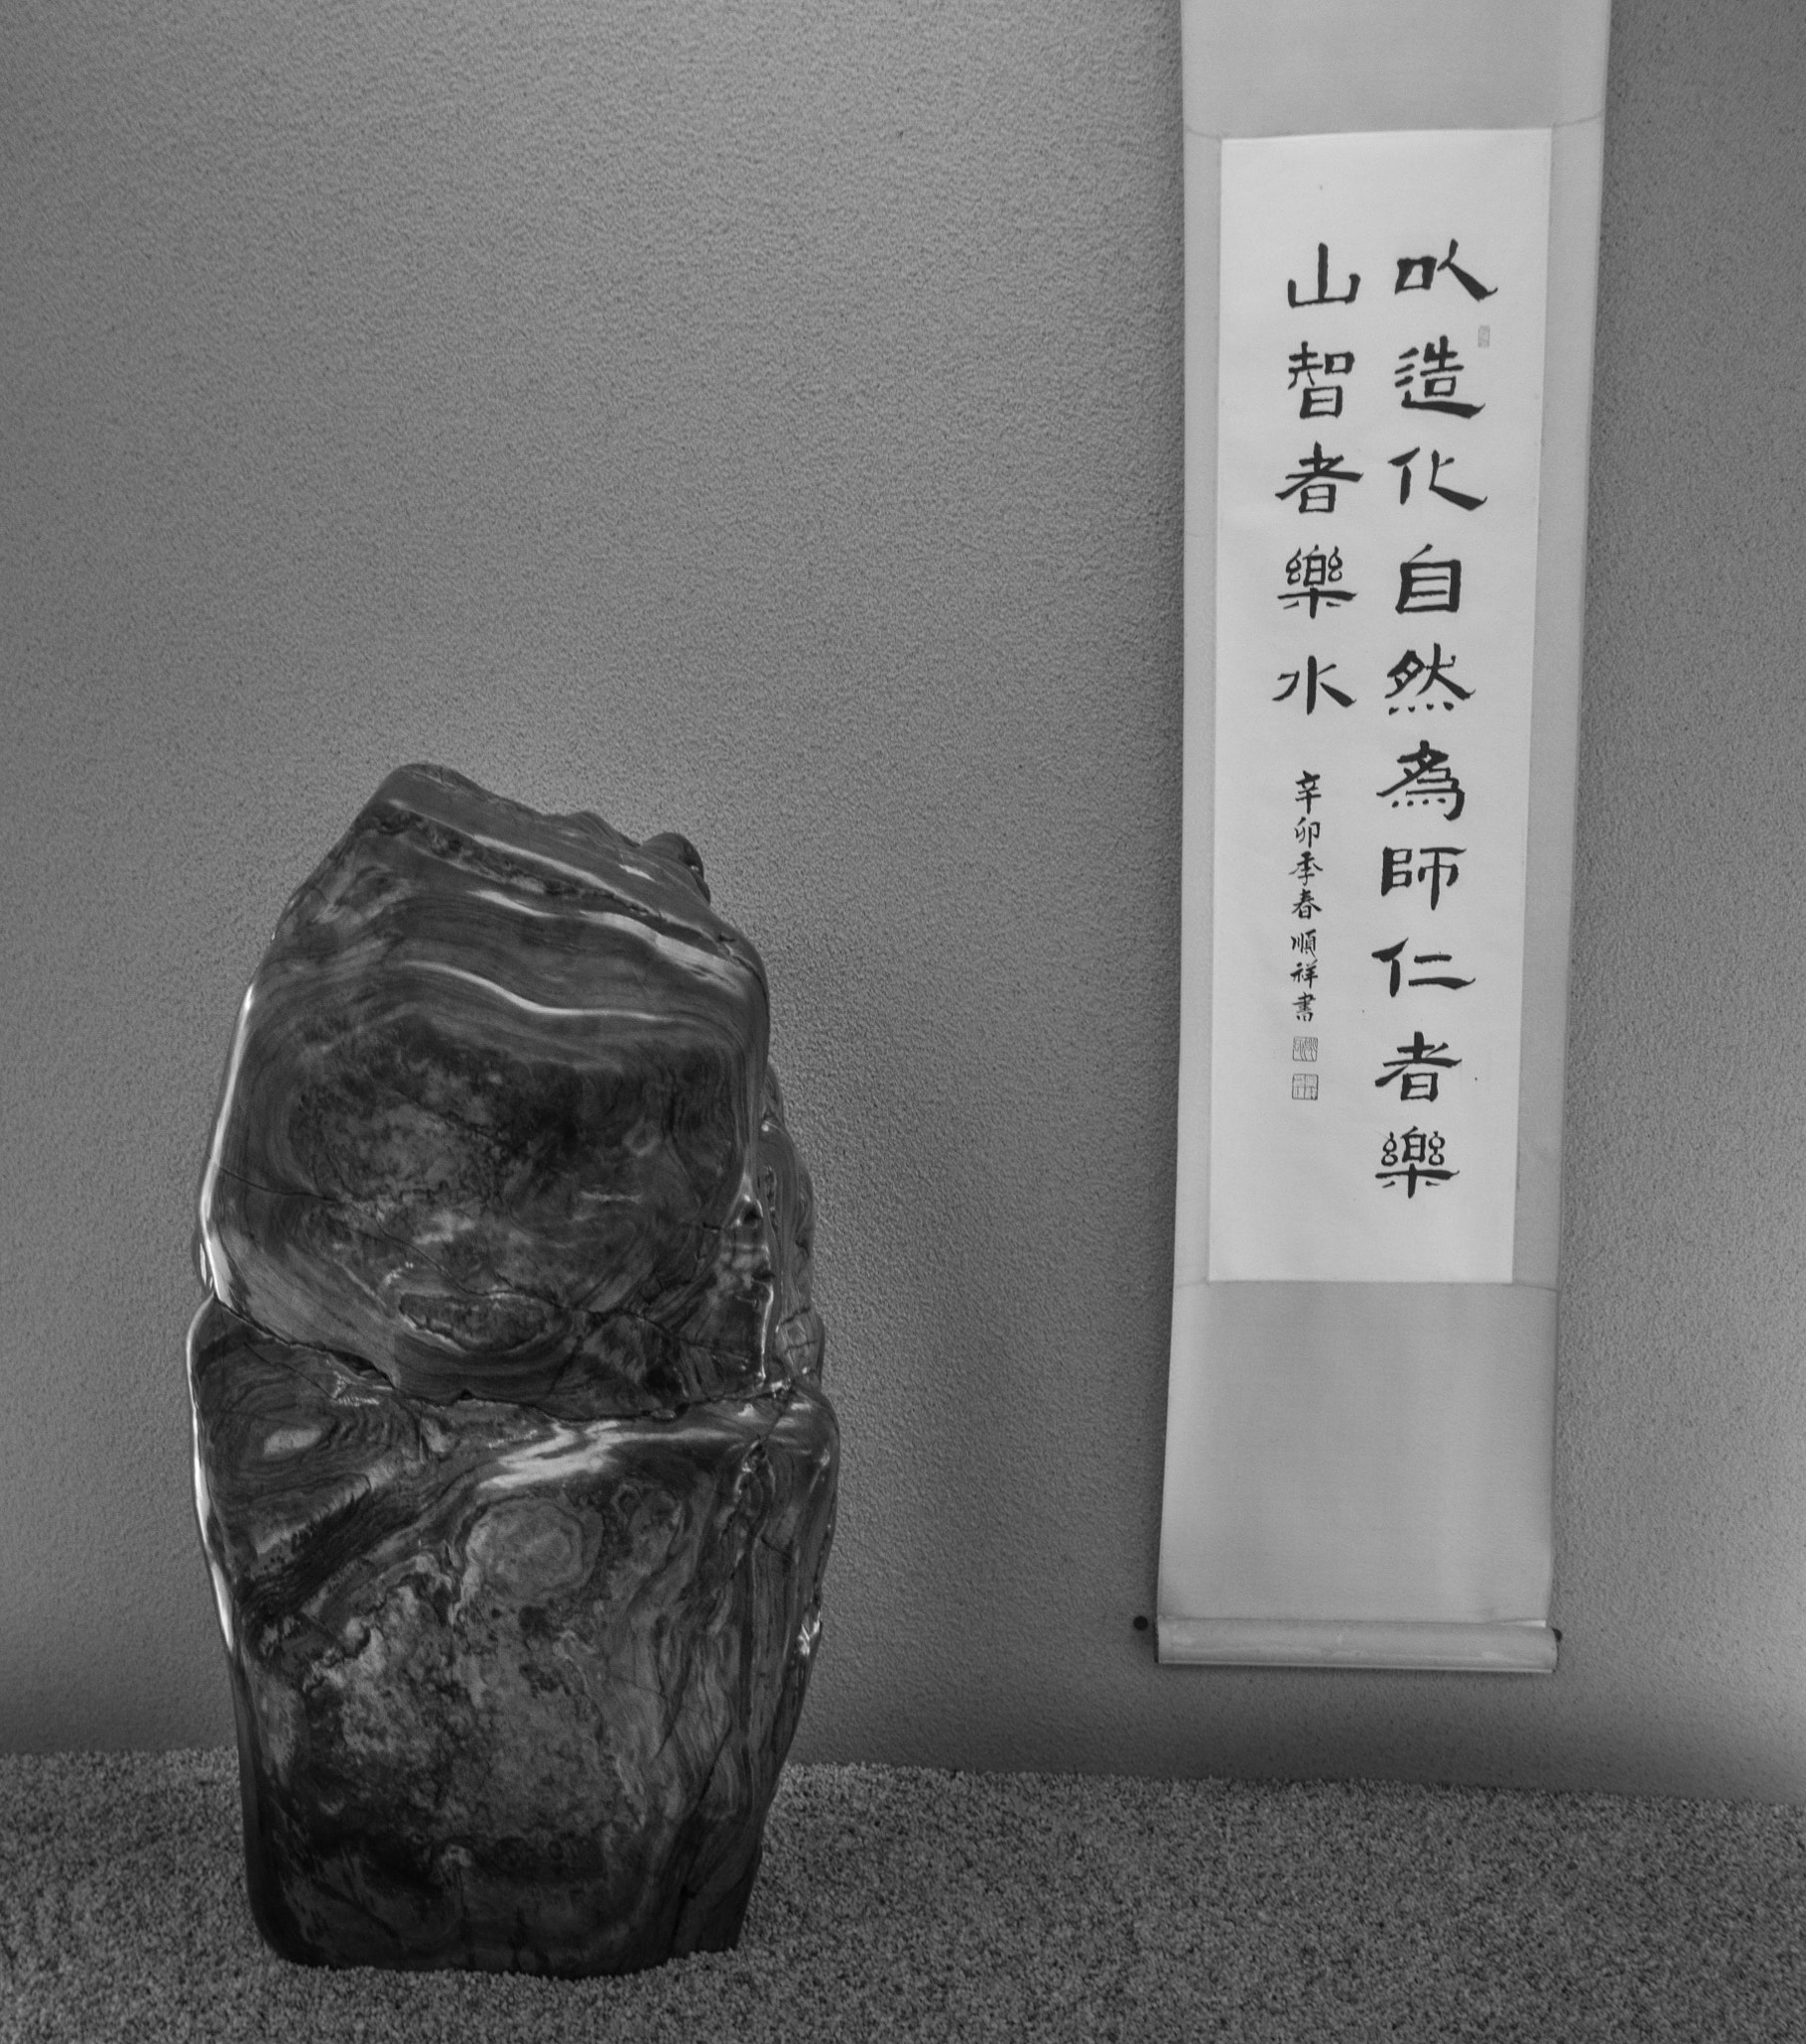 以造化自然為師仁者樂
山智者樂水
辛卯季春順祥書